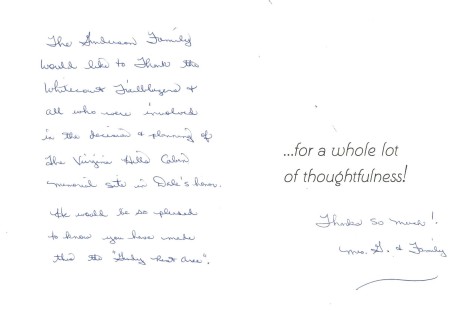 The Anderson Family
would like to Thank the
Whitecourt Trailblazers &
all who were involved
in the decision & planning of
The Virginia Hills Cabin
memorial site in Dale's honor.
He would be so pleased
to know you have made
this the " Rest Area".
...for a whole lot
of thoughtfulness!
Thanks so much!
Mrs. G. & Family